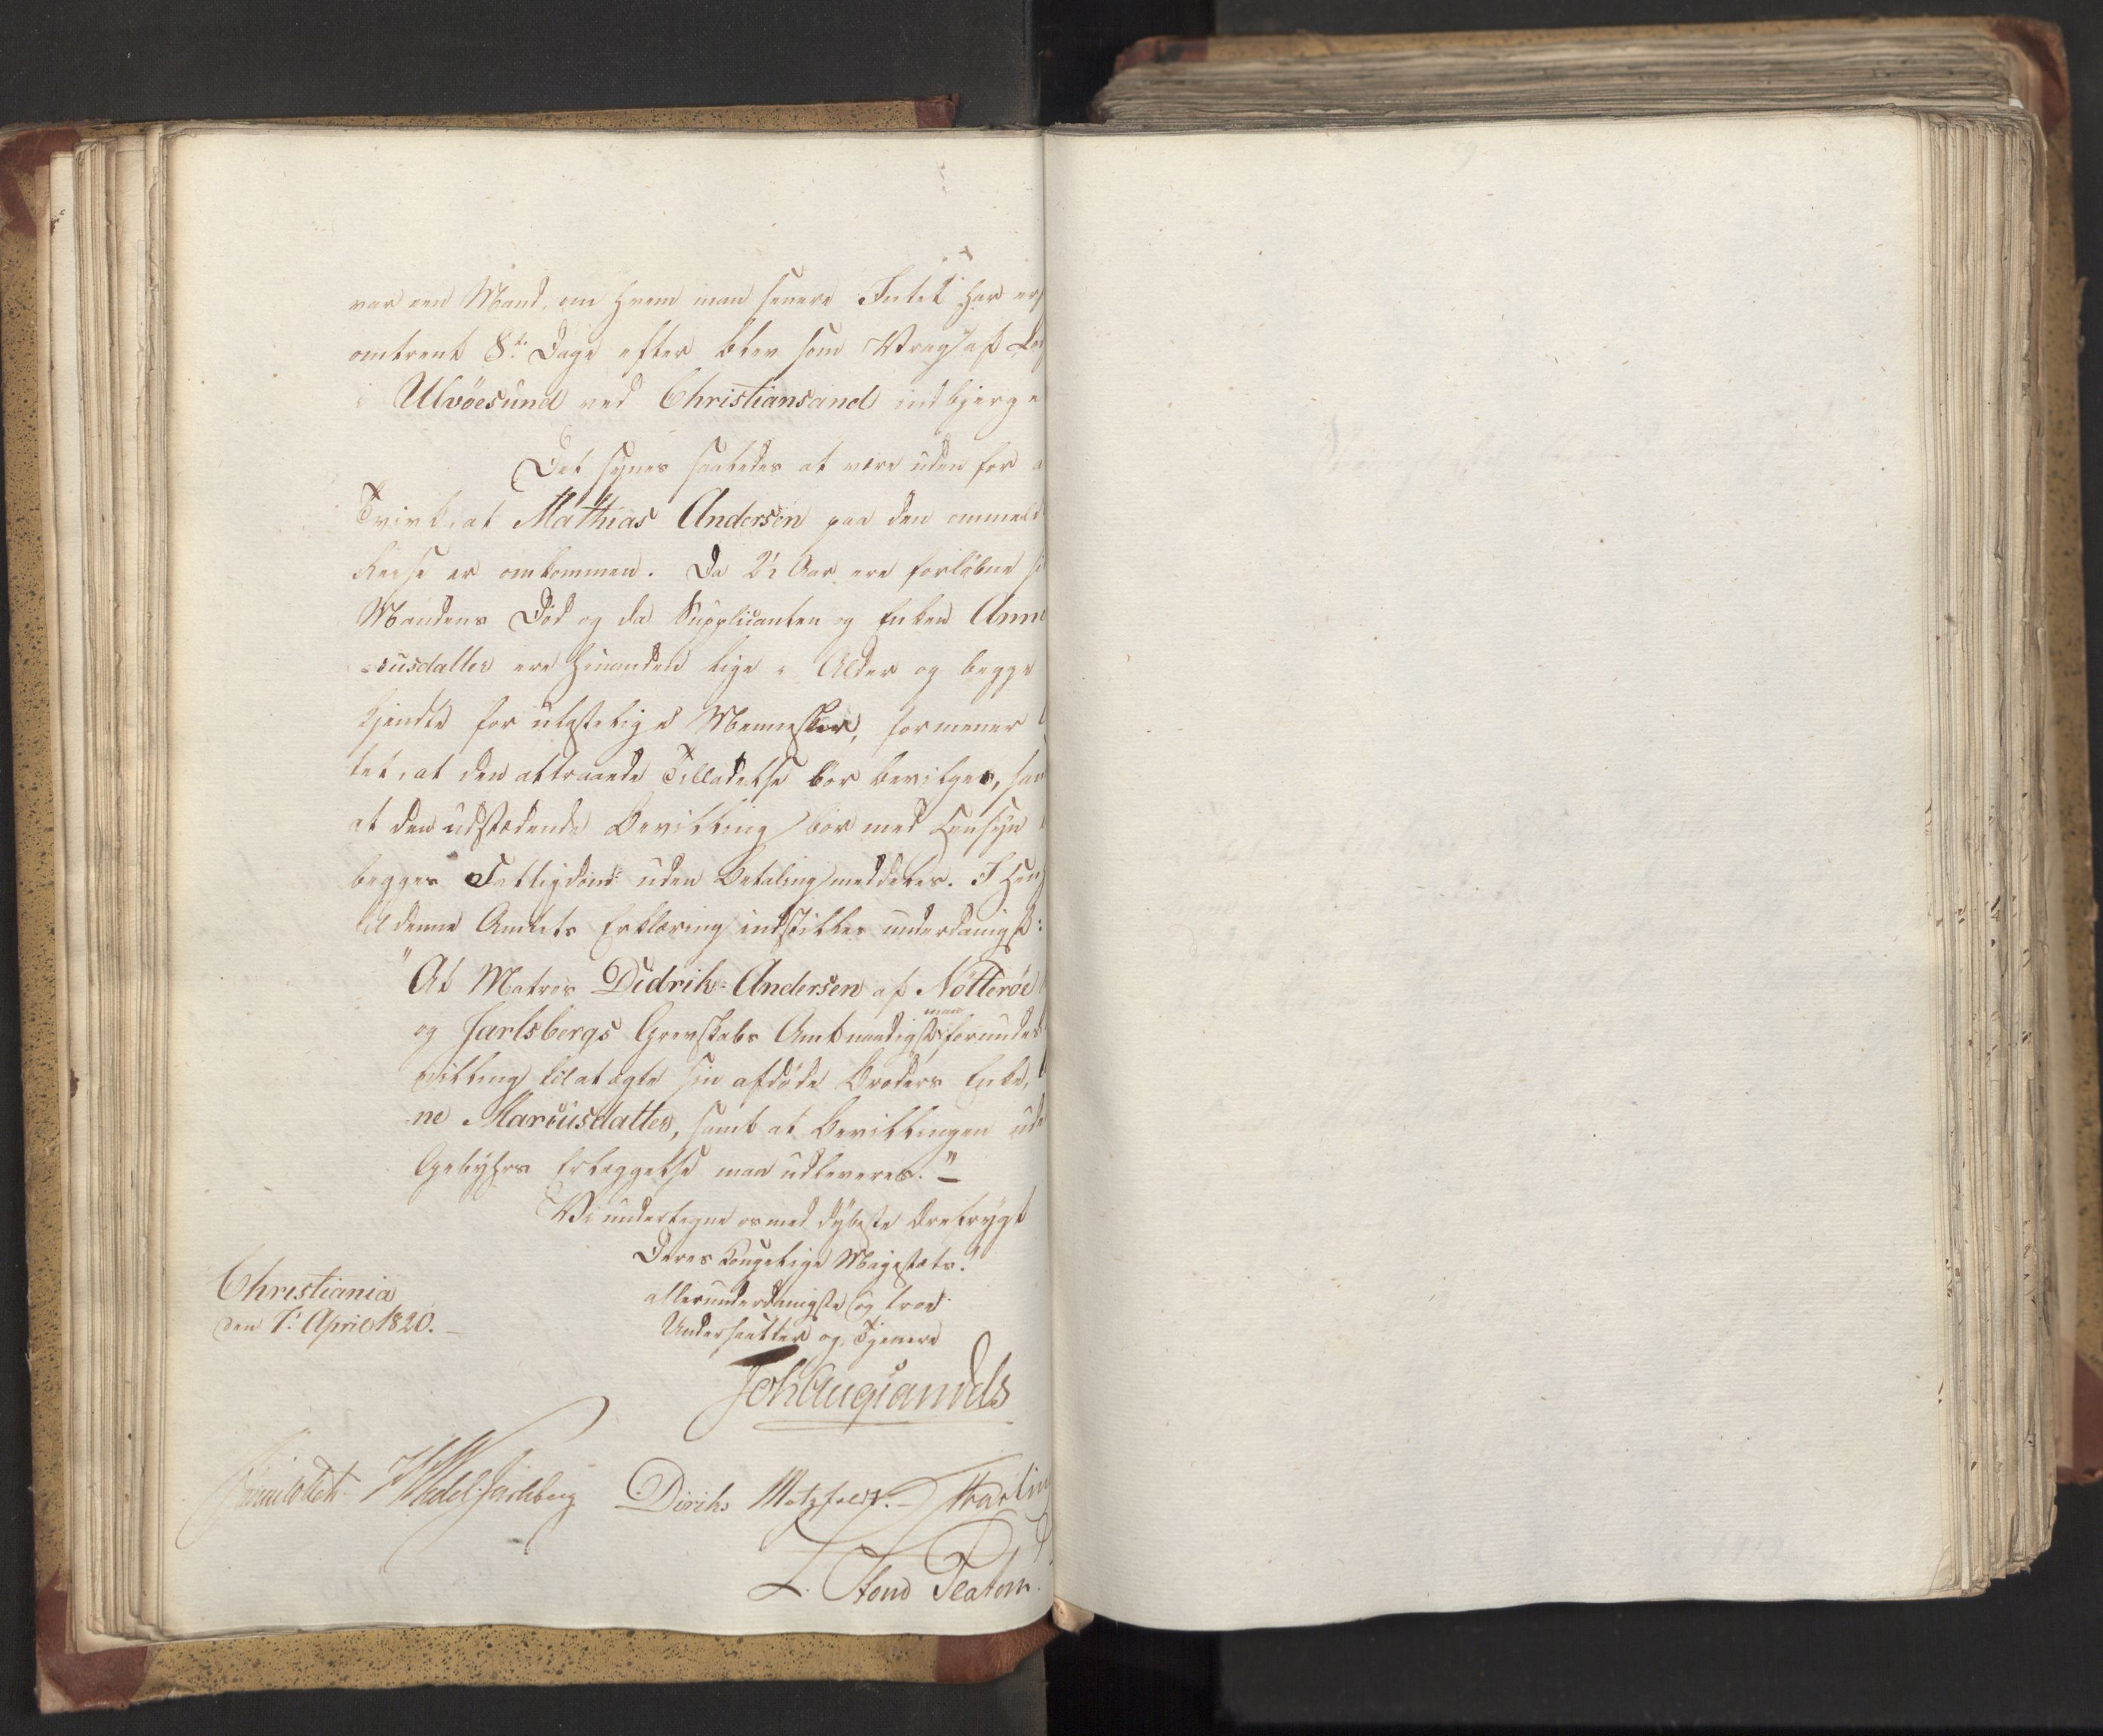 var een Mand, om hvem man senere Intet har erf
omtrent 8te Dage efter blev som Vrag af Lo
i Ulvöesund ved Christiansand indbjerge
Det synes saaledes at være uden for a
Tvivl, at Mathias Andersen paa den ommeld
Reise er omkommen. Da 2½ Aar ere forløbne si
Mandens Död og da Supplicanten og Enken Anne
-cusdatter ere hinanden lige i Alder og begge
kjendte for ulastelige Mennesker, formener
tet, at den attraaede Tilladelse bör bevilges, sam
at den udstædende Bevilling bör med Hensyn
begges Fattigdom uden Betaling meddeles. I Hen
til denne Amtets Erklæring indstilles underdanigst:
"At Matros Didrik Andersen af Nötteröe
og Jarlsbergs Grevskabs Amt naadigst maa forundes
villing til at ægte sin afdöde Broders Enke,
ne Marcusdatter, samt at Bevillingen ude
Gebyhrs Erlæggelse maa udleveres."
Vi undertegne os med dybeste Ærefrygt
Deres Kongelige Majestæts
allerunderdanigste og troe
Undersaatter og Tjenere
Christiania
den 7. April 1820.
Joh Aug Sandels
Sommerhielm HWedel Jarlsberg Diriks Motzfeldt. Krarting
L. Stoud Platou.